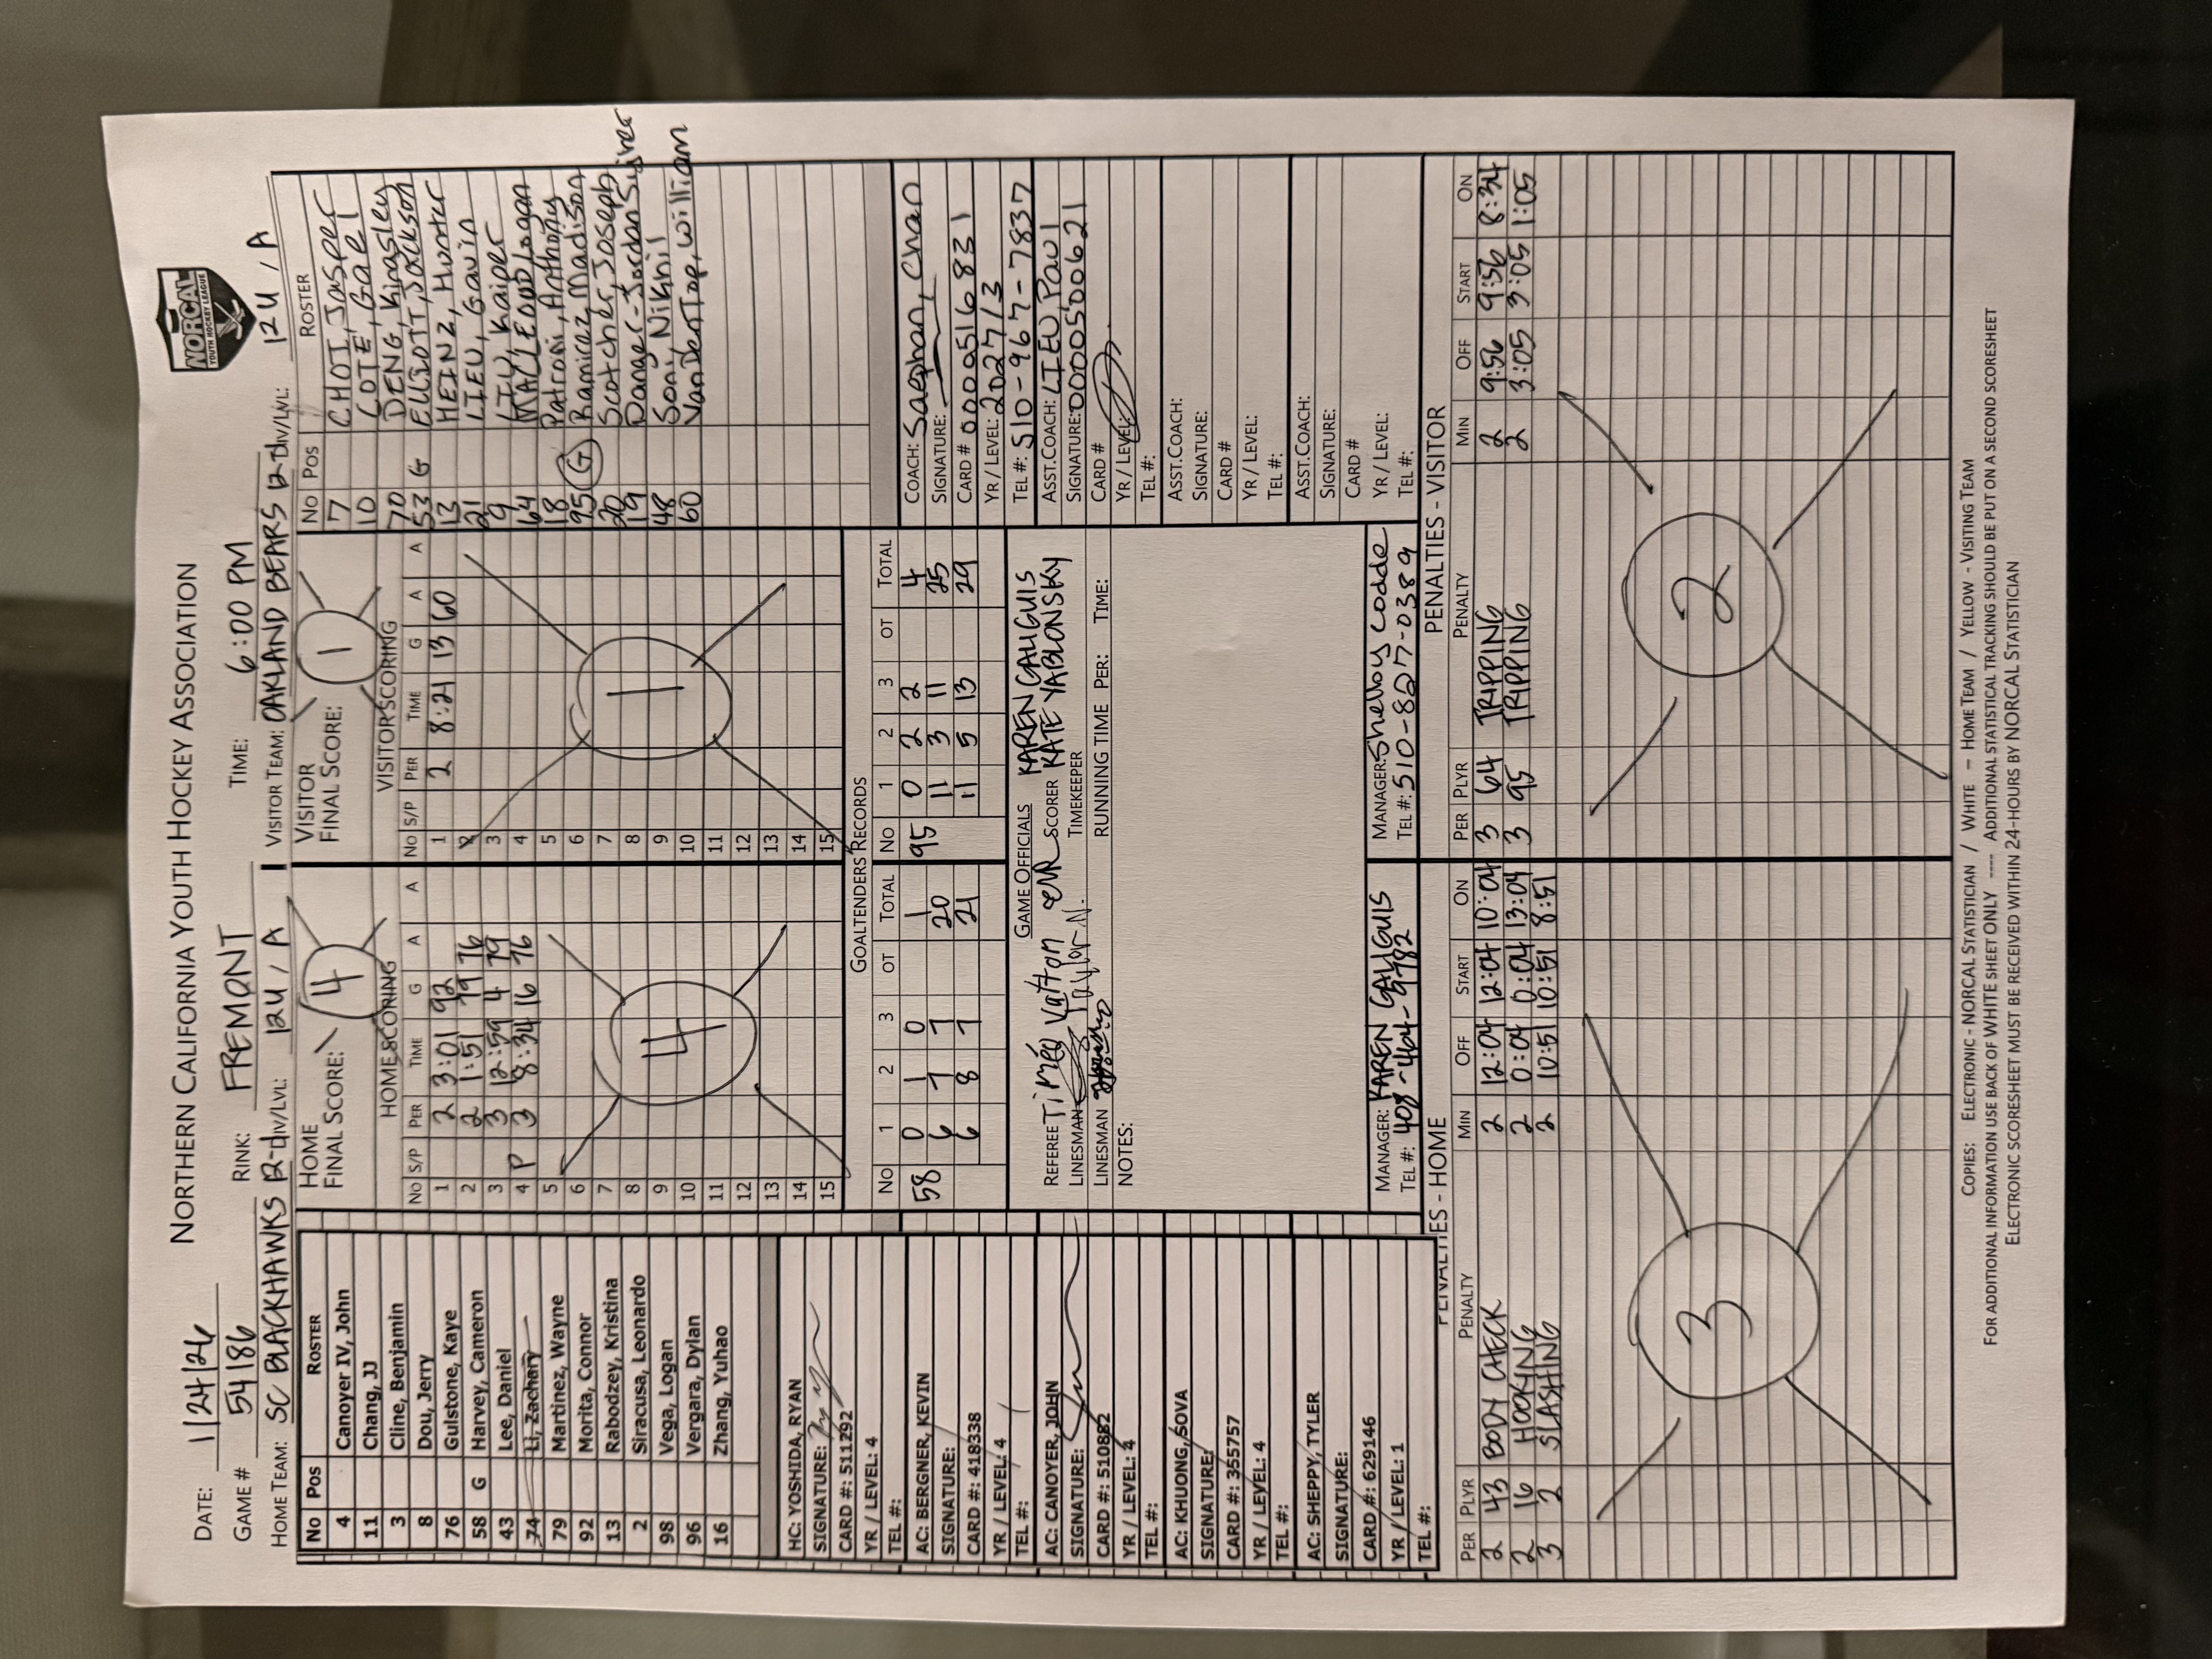 NORTHERN CALIFORNIA YOUTH HOCKEY ASSOCIATION
NORCAL
YOUTH HOCKEY LEAGUE
DATE: 1/24/26
GAME # 54186 RINK: FREMONT TIME: 6:00 PM
HOME TEAM: SC BLACKHAWKS 12-2 DIV/LVL: 12U / A VISITOR TEAM: OAKLAND BEARS 12-2 DIV/LVL: 12U / A
No Pos ROSTER
4 Canoyer IV, John
11 Chang, JJ
3 Cline, Benjamin
8 Dou, Jerry
76 Gulstone, Kaye
58 G Harvey, Cameron
43 Lee, Daniel
74 Li, Zachary
79 Martinez, Wayne
92 Morita, Connor
13 Rabodzey, Kristina
2 Siracusa, Leonardo
98 Vega, Logan
96 Vergara, Dylan
16 Zhang, Yuhao
HC: YOSHIDA, RYAN
SIGNATURE:
CARD #: 511292
YR / LEVEL: 4
TEL #:
AC: BERGNER, KEVIN
SIGNATURE:
CARD #: 418338
YR / LEVEL: 4
TEL #:
AC: CANOYER, JOHN
SIGNATURE:
CARD #: 510882
YR / LEVEL: 4
TEL #:
AC: KHUONG, SOVA
SIGNATURE:
CARD #: 355757
YR / LEVEL: 4
TEL #:
AC: SHEPPY, TYLER
SIGNATURE:
CARD #: 629146
YR / LEVEL: 1
TEL #:
HOME
FINAL SCORE: 4
HOME SCORING
No S/P PER TIME G A A
1 2 3:01 92
2 2 1:51 79 76
3 3 12:59 4 79
4 P 3 8:34 16 76
5
6
7
8
9
10
11
12
13
14
15
4
VISITOR
FINAL SCORE: 1
VISITOR SCORING
No S/P PER TIME G A A
1 2 8:21 13 60
2
3
4
5
6
7
8
9
10
11
12
13
14
15
1
GOALTENDERS RECORDS
No 1 2 3 OT TOTAL
58 0 1 0 1
6 7 7 20
6 8 7 21
No 1 2 3 OT TOTAL
95 0 2 2 4
11 3 11 25
11 5 13 29
GAME OFFICIALS
REFEREE Timéo Vatton
LINESMAN Taylor N.
LINESMAN
SCORER KAREN GALIGUIS
TIMEKEEPER KATE YABLONSKY
RUNNING TIME PER: TIME:
NOTES:
MANAGER: KAREN GALIGUIS
TEL #: 408-464-9782
MANAGER: Shelley Codde
TEL #: 510-827-0389
No Pos ROSTER
7 CHOI, Jasper
10 COTE, Gael
70 DENG, Kingsley
53 G ELLIOTT, Jackson
13 HEINZ, Hunter
21 LIEU, Gavin
9 LIU, Kaiper
64 MACLEOD, Logan
18 Patroni, Anthony
95 G Ramirez, Madison
20 Scotcher, Joseph
19 Danger-Jordan
48 Soni, Nikhil
60 VanDerTop, William
COACH: Saephan, Chan
SIGNATURE:
CARD # 0000516831
YR / LEVEL: 2027/3
TEL #: 510-967-7837
ASST.COACH: LIEU, Paul
SIGNATURE: 0000500621
CARD #
YR / LEVEL:
TEL #:
ASST.COACH:
SIGNATURE:
CARD #
YR / LEVEL:
TEL #:
ASST.COACH:
SIGNATURE:
CARD #
YR / LEVEL:
TEL #:
PENALTIES - HOME
PER PLYR PENALTY MIN OFF START ON
2 43 BODY CHECK 2 12:04 12:04 10:04
2 16 HOOKING 2 0:04 0:04 13:04
3 2 SLASHING 2 10:51 10:51 8:51
3
PENALTIES - VISITOR
PER PLYR PENALTY MIN OFF START ON
3 64 TRIPPING 2 9:56 9:56 8:34
3 95 TRIPPING 2 3:05 3:05 1:05
2
COPIES: ELECTRONIC - NORCAL STATISTICIAN / WHITE – HOME TEAM / YELLOW - VISITING TEAM
FOR ADDITIONAL INFORMATION USE BACK OF WHITE SHEET ONLY ---- ADDITIONAL STATISTICAL TRACKING SHOULD BE PUT ON A SECOND SCORESHEET
ELECTRONIC SCORESHEET MUST BE RECEIVED WITHIN 24-HOURS BY NORCAL STATISTICIAN